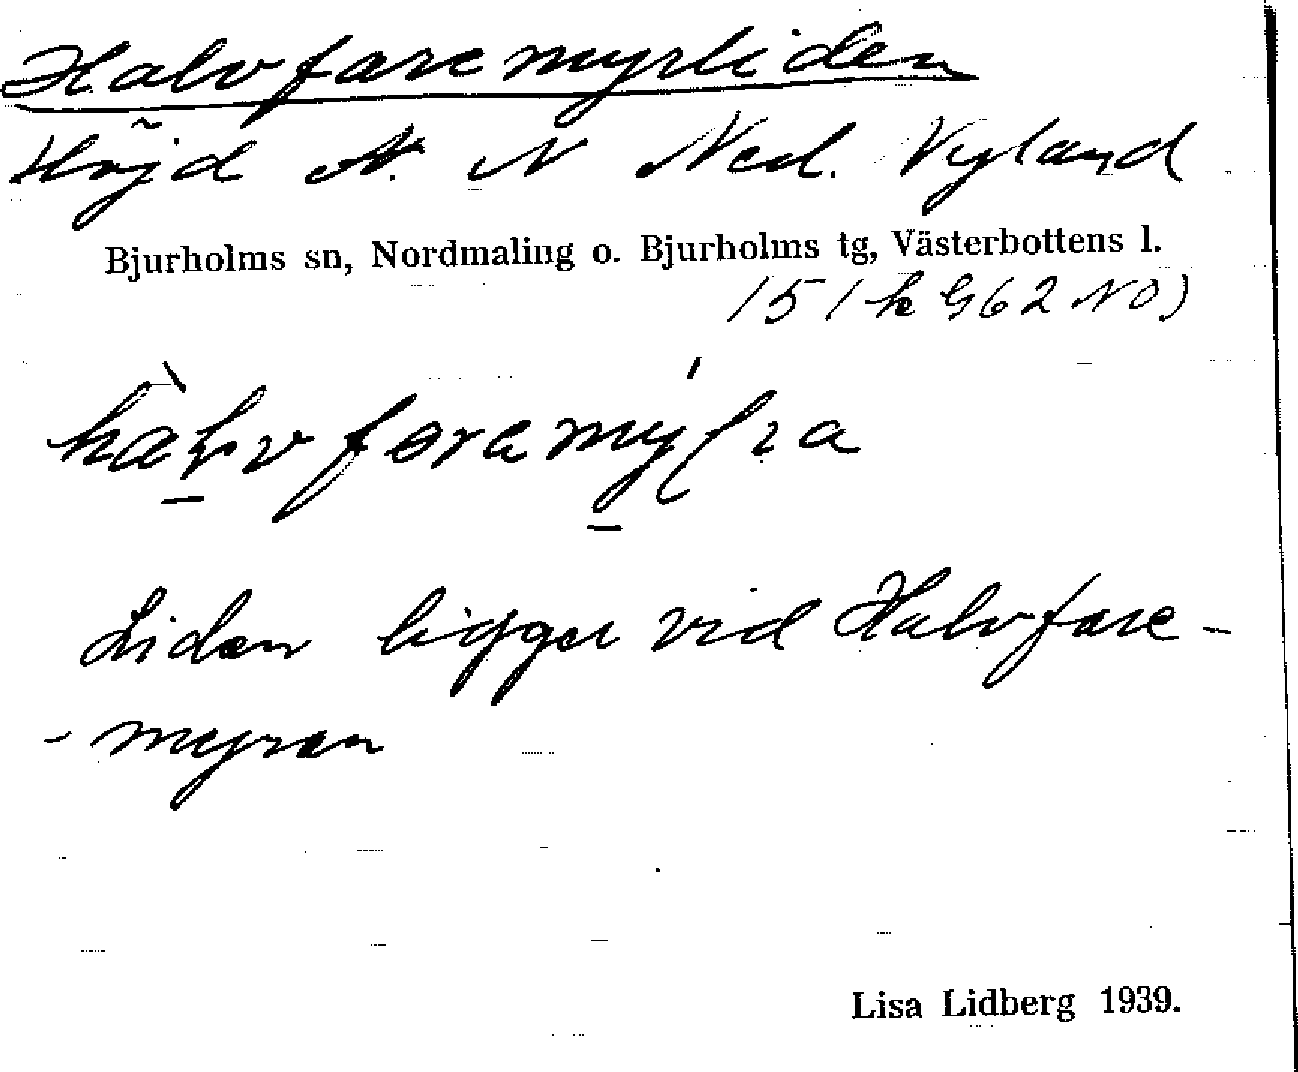 Halvfaremyrliden
Höjd N. N Ned. Nyland
Bjurholms sn, Nordmaling o. Bjurholms tg, Västerbottens l.
(51 k G62 NO)
Liden ligger vid Halvfare-
- myran
Lisa Lidberg 1939.